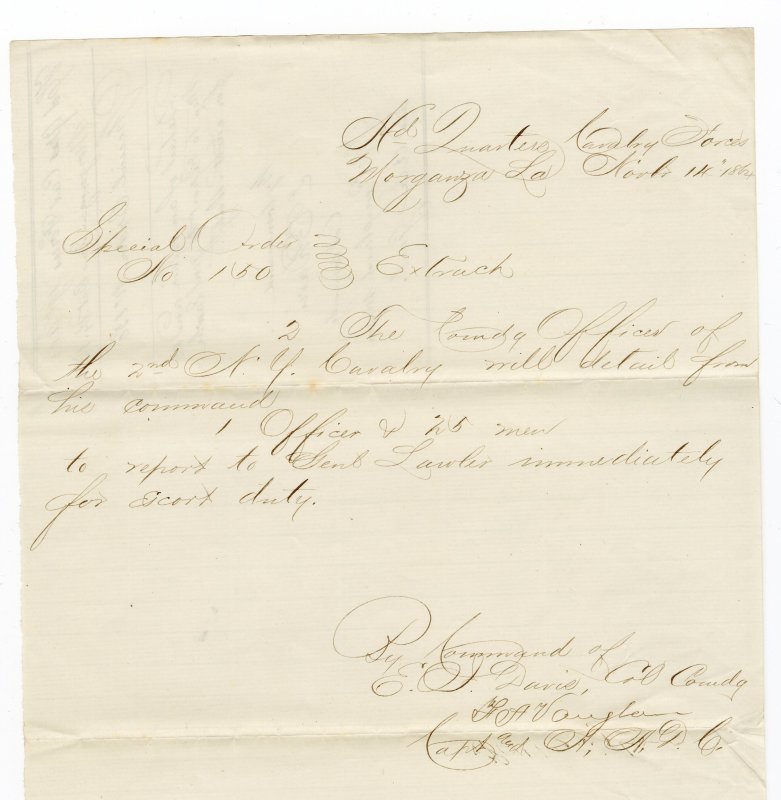 Hd Quarters Cavalry Forces
Morganza La Novbr 14" 1864
Special Order
No 150 Extrach
2 The Comdg Officer of
the 2nd N. Y. Cavalry will detail from
his command
1 Officer & 25 men
to report to Genl Lawler immediately
for escort duty.
By Command of
E. J. Davis, Col Comdg
Vaughan
Capt and A. A. D. C.